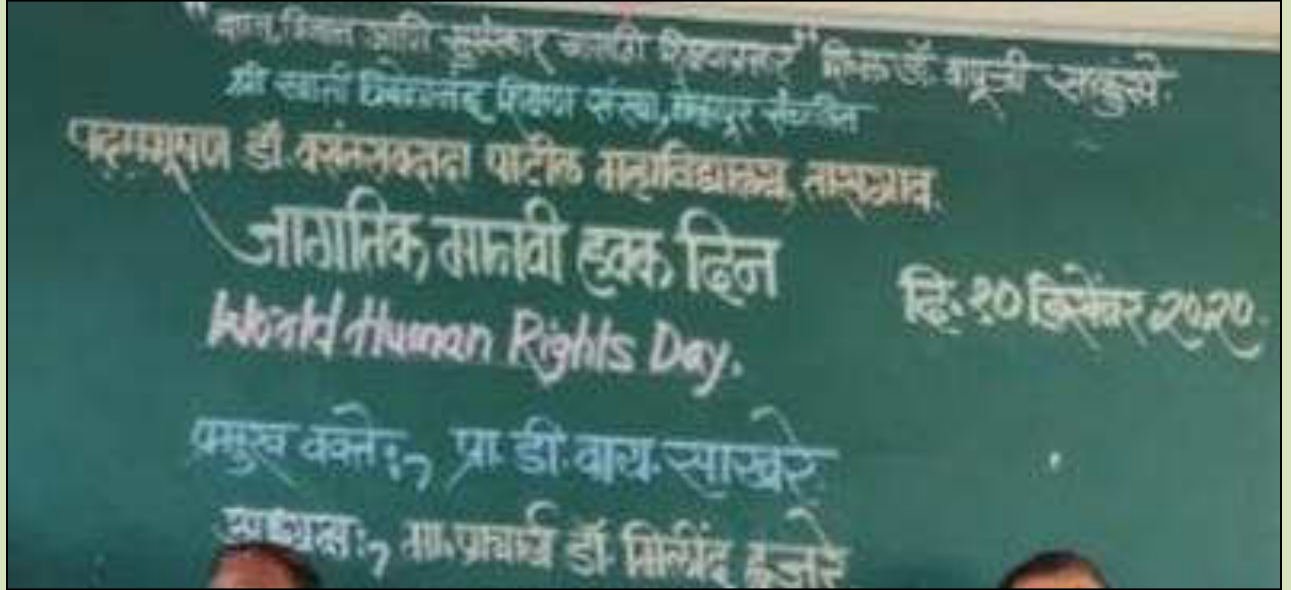 "ज्ञान, विज्ञान आणि सुसंस्कार यासाठी शिक्षणप्रसार" शिक्षणमहर्षी डॉ. बापूजी साळुंखे.
श्री स्वामी विवेकानंद शिक्षण संस्था, कोल्हापूर संचलित
पद्मभूषण डॉ. वसंतरावदादा पाटील महाविद्यालय, तासगाव.
जागतिक मानवी हक्क दिन
दि. १० डिसेंबर २०२०.
World Human Rights Day.
प्रमुख वक्ते:, प्रा. डी. वाय. साखरे
अध्यक्ष:, मा. प्राचार्य डॉ. मिलींद हुजरे